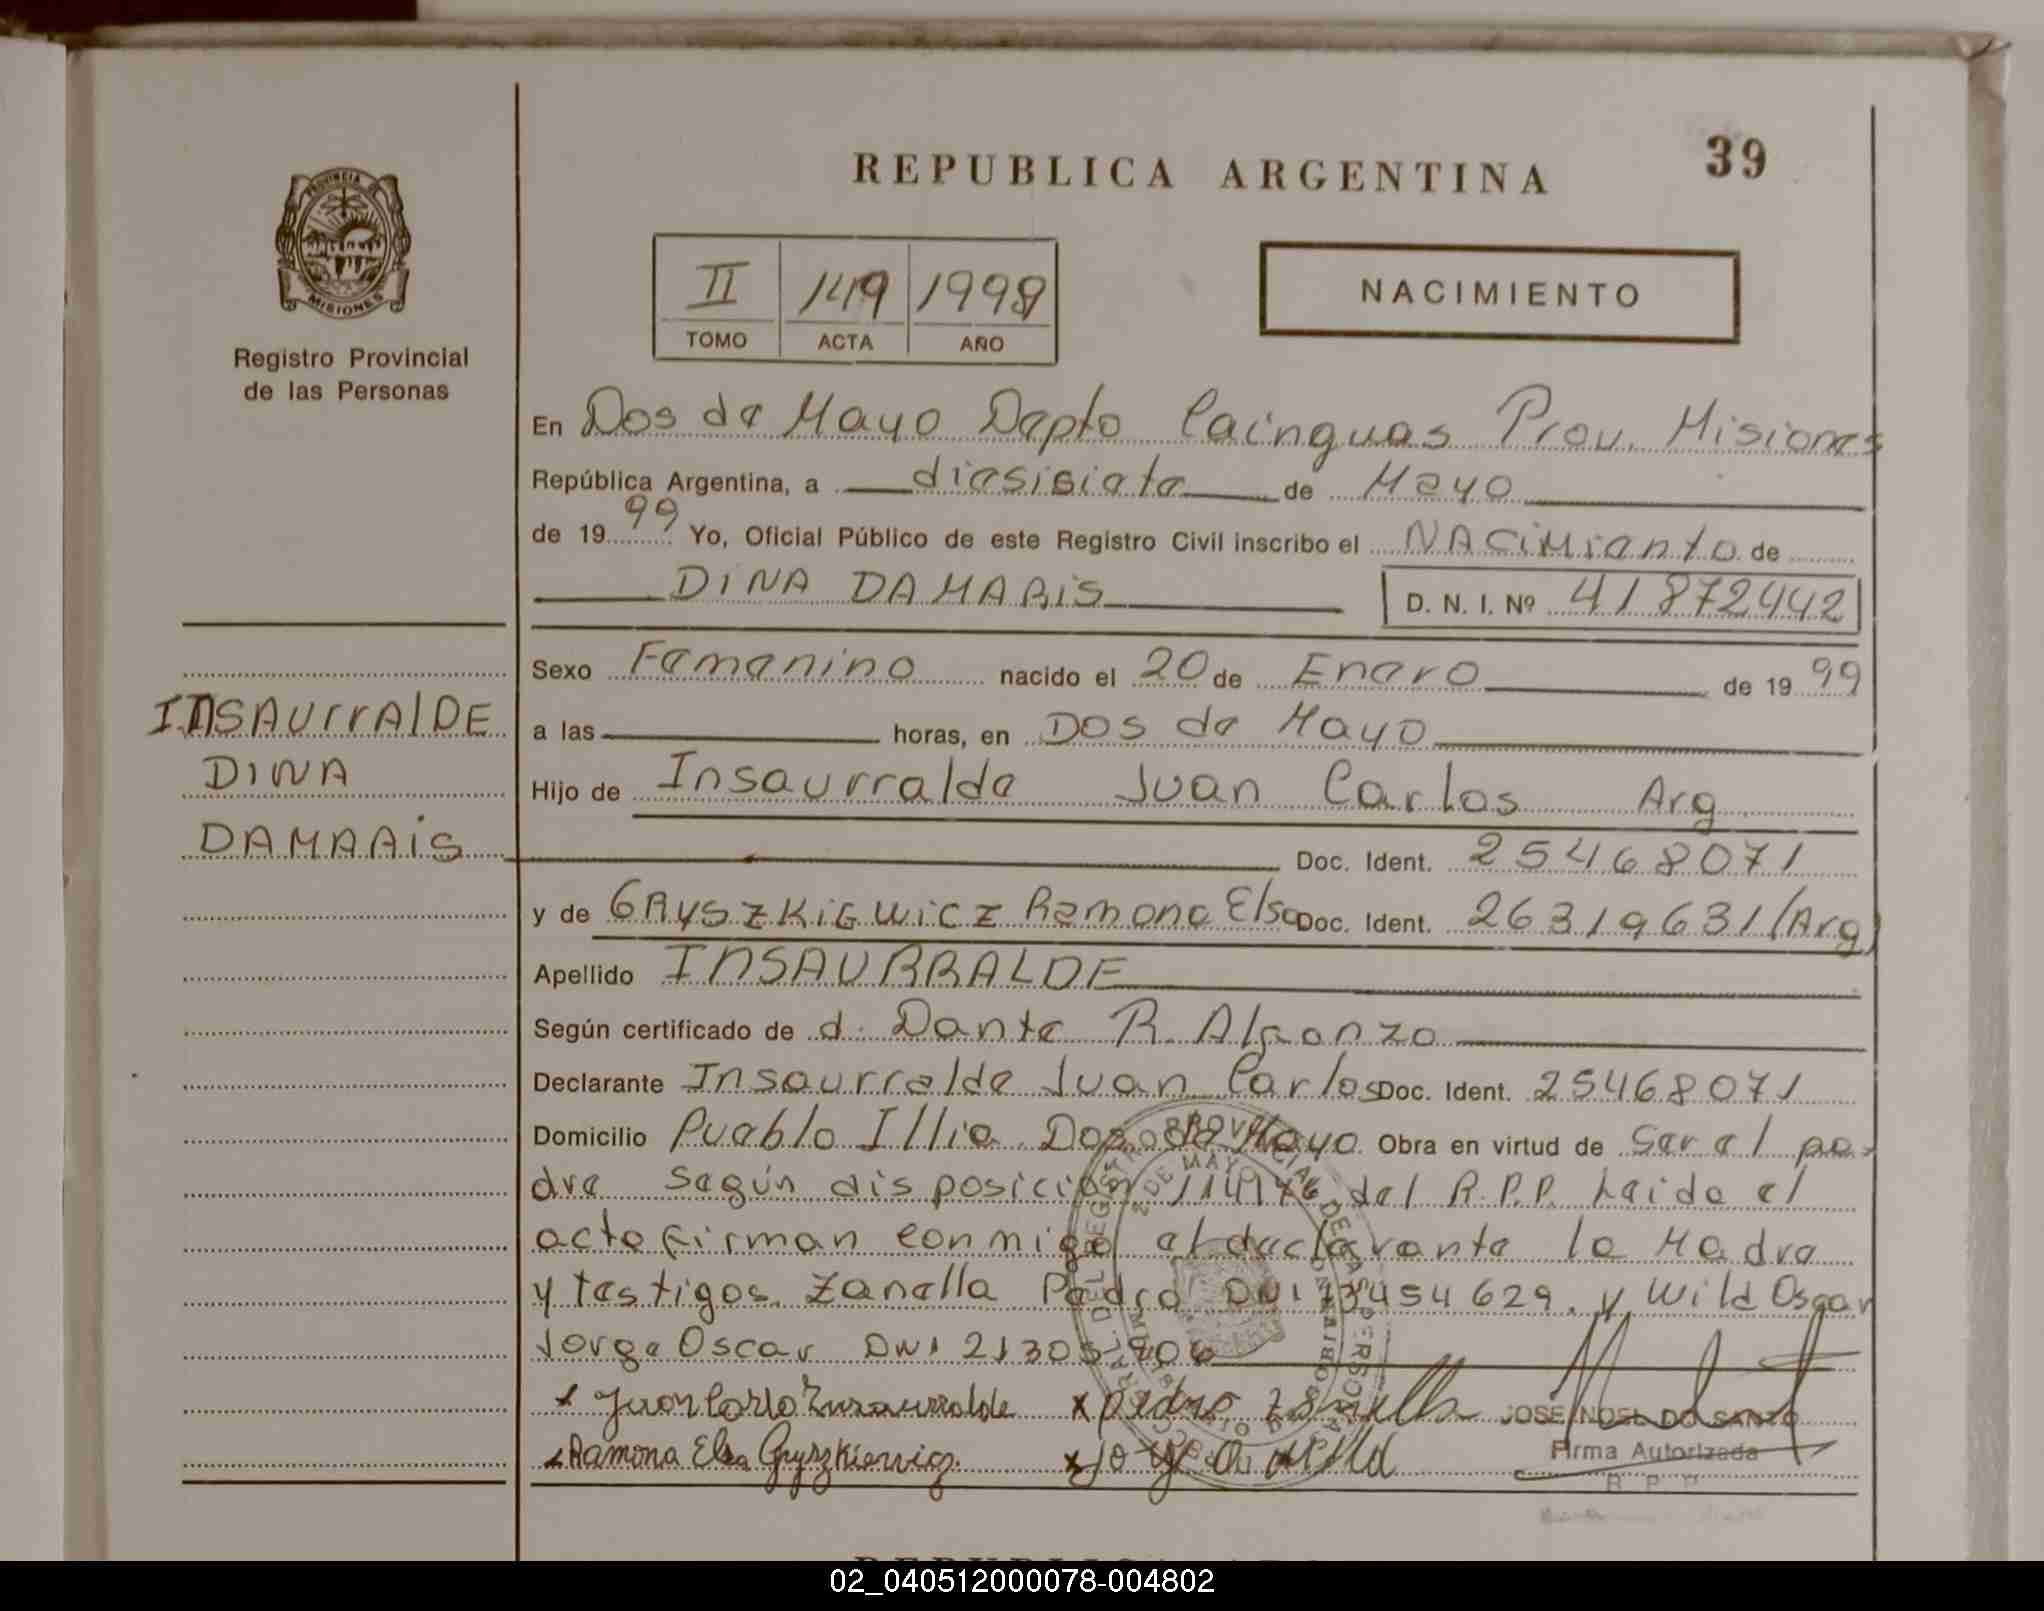 REPUBLICA ARGENTINA
39
PROVINCIA DE
MISIONES
Registro Provincial
de las Personas
II 149 1999
TOMO ACTA AÑO
NACIMIENTO
En Dos de Mayo Depto Cainguas Prov. Misiones
República Argentina, a diesisiete de Mayo
de 1999 Yo, Oficial Público de este Registro Civil inscribo el NACiMiento de
DINA DAMARiS D. N. I. Nº 41872442
Sexo Femenino nacido el 20 de Enero de 1999
a las horas, en Dos de Mayo
INSAUrrAlDE
DINA
DAMARiS
Hijo de Insaurralde Juan Carlos Arg
Doc. Ident. 25468071
y de GRYSZKiEWiCZ Ramona Elsa Doc. Ident. 26319631 (Arg)
Apellido INSAURRALDE
Según certificado de d. Dante R. Alfonzo
Declarante Insaurralde Juan Carlos Doc. Ident. 25468071
Domicilio Pueblo Illia Dos de Mayo Obra en virtud de Ser el pa-
dre según disposición del R.P.P. Leida el
acta firman conmigo el declarante la Madre
y testigos Zanella Pedro DNI 13454629. y Wild Oscar
Jorge Oscar DNI
x Juan Carlo Insaurralde x pedro zanella JOSE NOEL DO SANTO
x Ramona Elsa Gryszkiewicz x Jorge O Wild Firma Autorizada
R P P
02_040512000078-004802